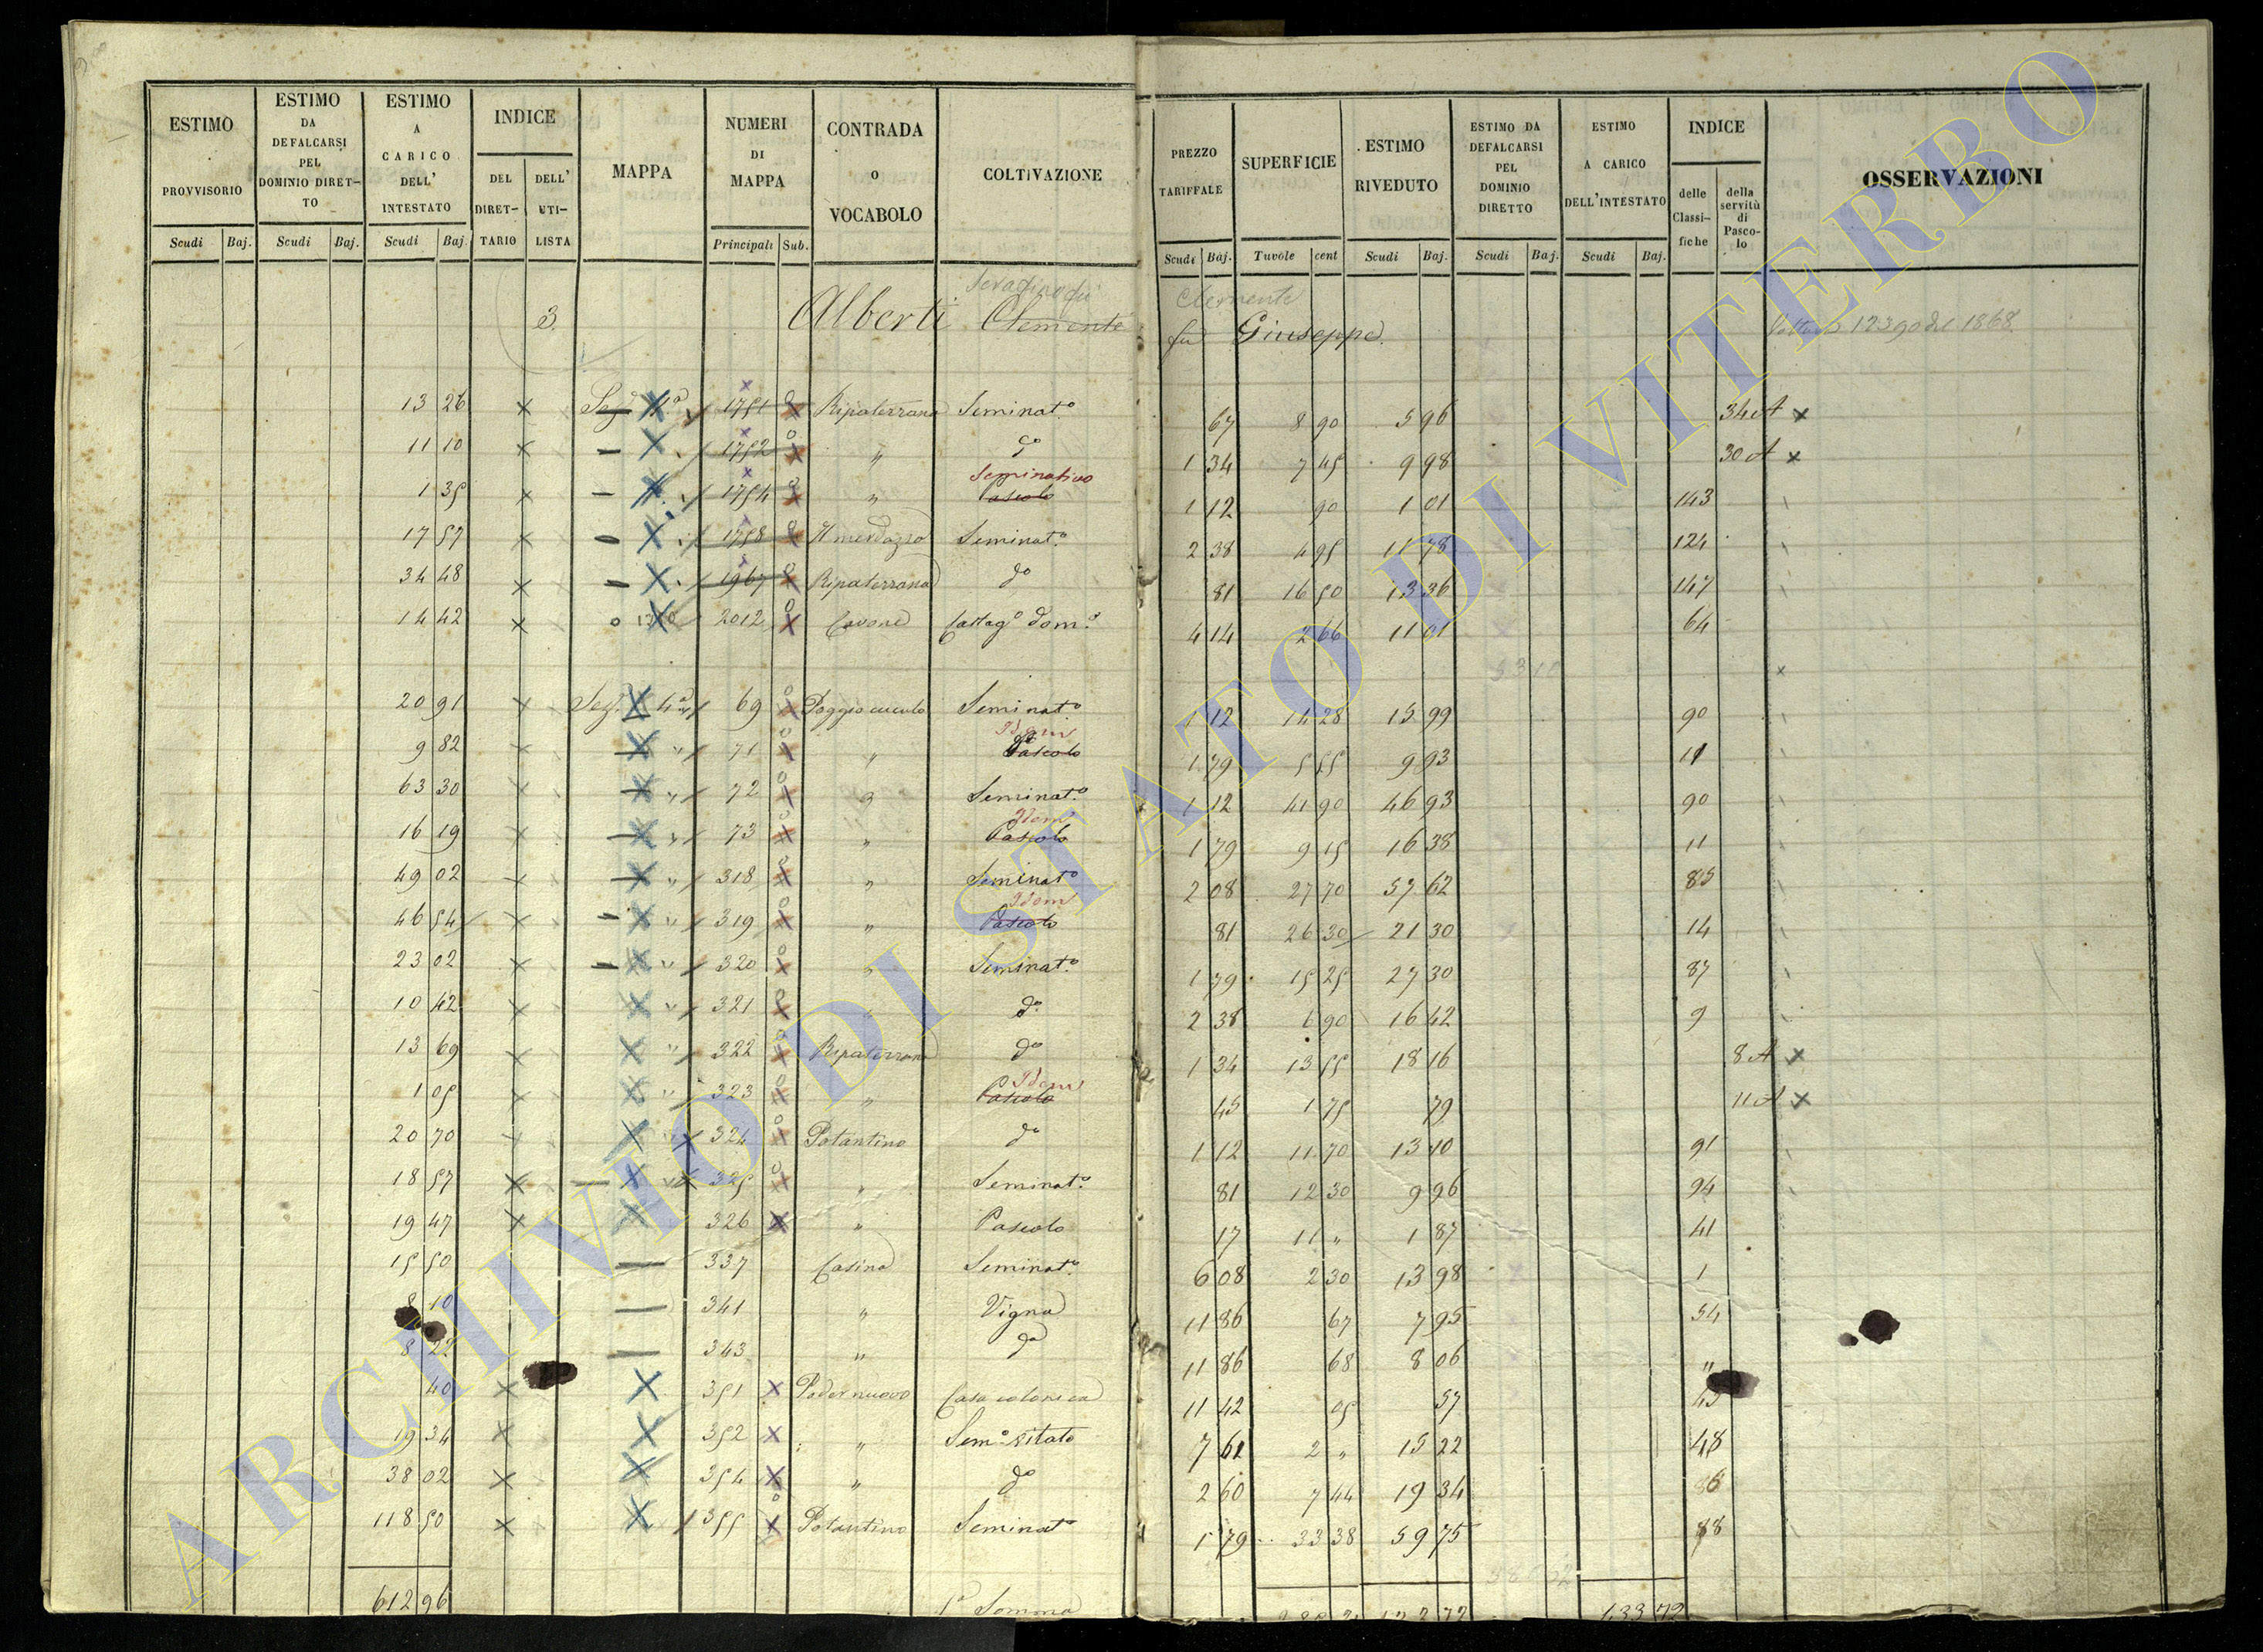 ESTIMO PROVVISORIO | ESTIMO DA DEFALCARSI PEL DOMINIO DIRET-TO | ESTIMO A CARICO DELL' INTESTATO | INDICE | MAPPA | NUMERI DI MAPPA | CONTRADA o VOCABOLO | COLTIVAZIONE | PREZZO TARIFFALE | SUPERFICIE | ESTIMO RIVEDUTO | ESTIMO DA DEFALCARSI PEL DOMINIO DIRETTO | ESTIMO A CARICO DELL'INTESTATO | INDICE | OSSERVAZIONI
DEL DIRET-TARIO | DELL' UTI-LISTA | delle Classi-fiche | della servitù di Pasco-lo
Scudi Baj. Scudi Baj. Scudi Baj. Principali Sub. Scudi Baj. Tavole cent Scudi Baj. Scudi Baj. Scudi Baj.
Clemente
3 Alberti Clemente fu Giuseppe 1239 del 1868
13 26 × 1751 Ripaterrana Seminat.o 67 8 90 5 96 34 A ×
11 10 × 1752 " do 1 34 7 45 9 98 30 A ×
Seminativo
1 35 × 1754 " Pascolo 1 12 90 1 01 143
17 57 × 1758 Seminat.o 2 38 4 95 11 78 124
34 48 × 1967 Ripaterrana do 81 16 50 13 36 147
14 42 × 2012 Cavone Castag.o dom.o 4 14 2 66 11 01 64
20 91 × 69 Poggio cuculo Seminat.o 1 12 14 28 15 99 90
Idem
9 82 × 71 " Pascolo 1 79 5 55 9 93 11
63 30 × 72 " Seminat.o 1 12 41 90 46 93 90
Idem
16 19 × 73 " Pascolo 1 79 9 15 16 38 11
49 02 × 318 " Seminat.o 2 08 27 70 57 62 85
Idem
46 54 × 319 " Pascolo 81 26 30 21 30 14
23 02 × 320 " Seminat.o 1 79 15 25 27 30 87
10 42 × 321 do 2 38 6 90 16 42 9
13 69 × 322 Ripaterrana do 1 34 13 55 18 16 8 A ×
Idem
1 05 × 323 " Pascolo 45 1 75 79 11 A ×
20 70 × 324 Potantino do 1 12 11 70 13 10 91
18 57 × 325 " Seminat.o 81 12 30 9 96 94
19 47 × 326 × " Pascolo 17 11 " 1 87 41
15 50 — 337 Casina Seminat.o 6 08 2 30 13 98 1
8 10 — 341 " Vigna 11 86 67 7 95 54
8 22 — 343 " do 11 86 68 8 06 "
40 × 351 × Poder nuovo Casa colonica 11 42 05 57 45
19 34 × 352 × " Sem.o vitato 7 61 2 " 15 22 48
38 02 × 354 × " do 2 60 7 44 19 34 86
118 50 × 355 × Potantino Seminat.o 1 79 33 38 59 75 88
612 96 1a Somma 133 72
ARCHIVIO DI STATO DI VITERBO